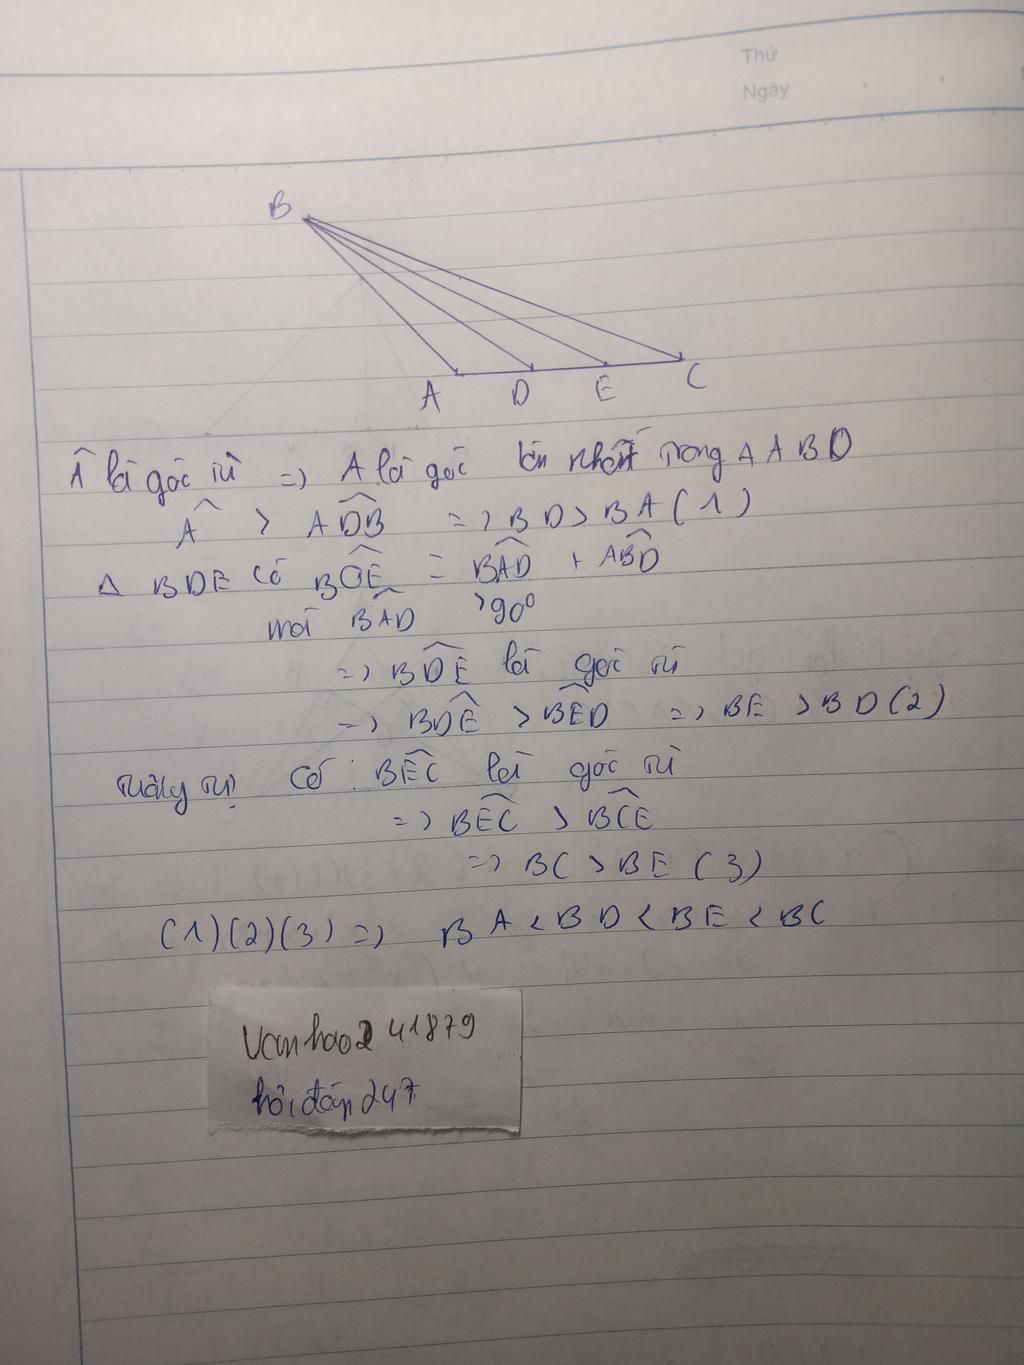 Thứ
Ngày
B
A D E C
Â là góc tù => A là góc lớn nhất trong Δ ABD
Â > ADB => BD > BA (1)
Δ BDE có BDE = BAD + ABD
mà BAD >90°
=> BDE là góc tù
=> BDE > BED => BE > BD (2)
Tương tự có : BEC là góc tù
=> BEC > BCE
=> BC > BE (3)
(1)(2)(3) => BA < BD < BE < BC
Vanhao241879
hỏi đáp 247